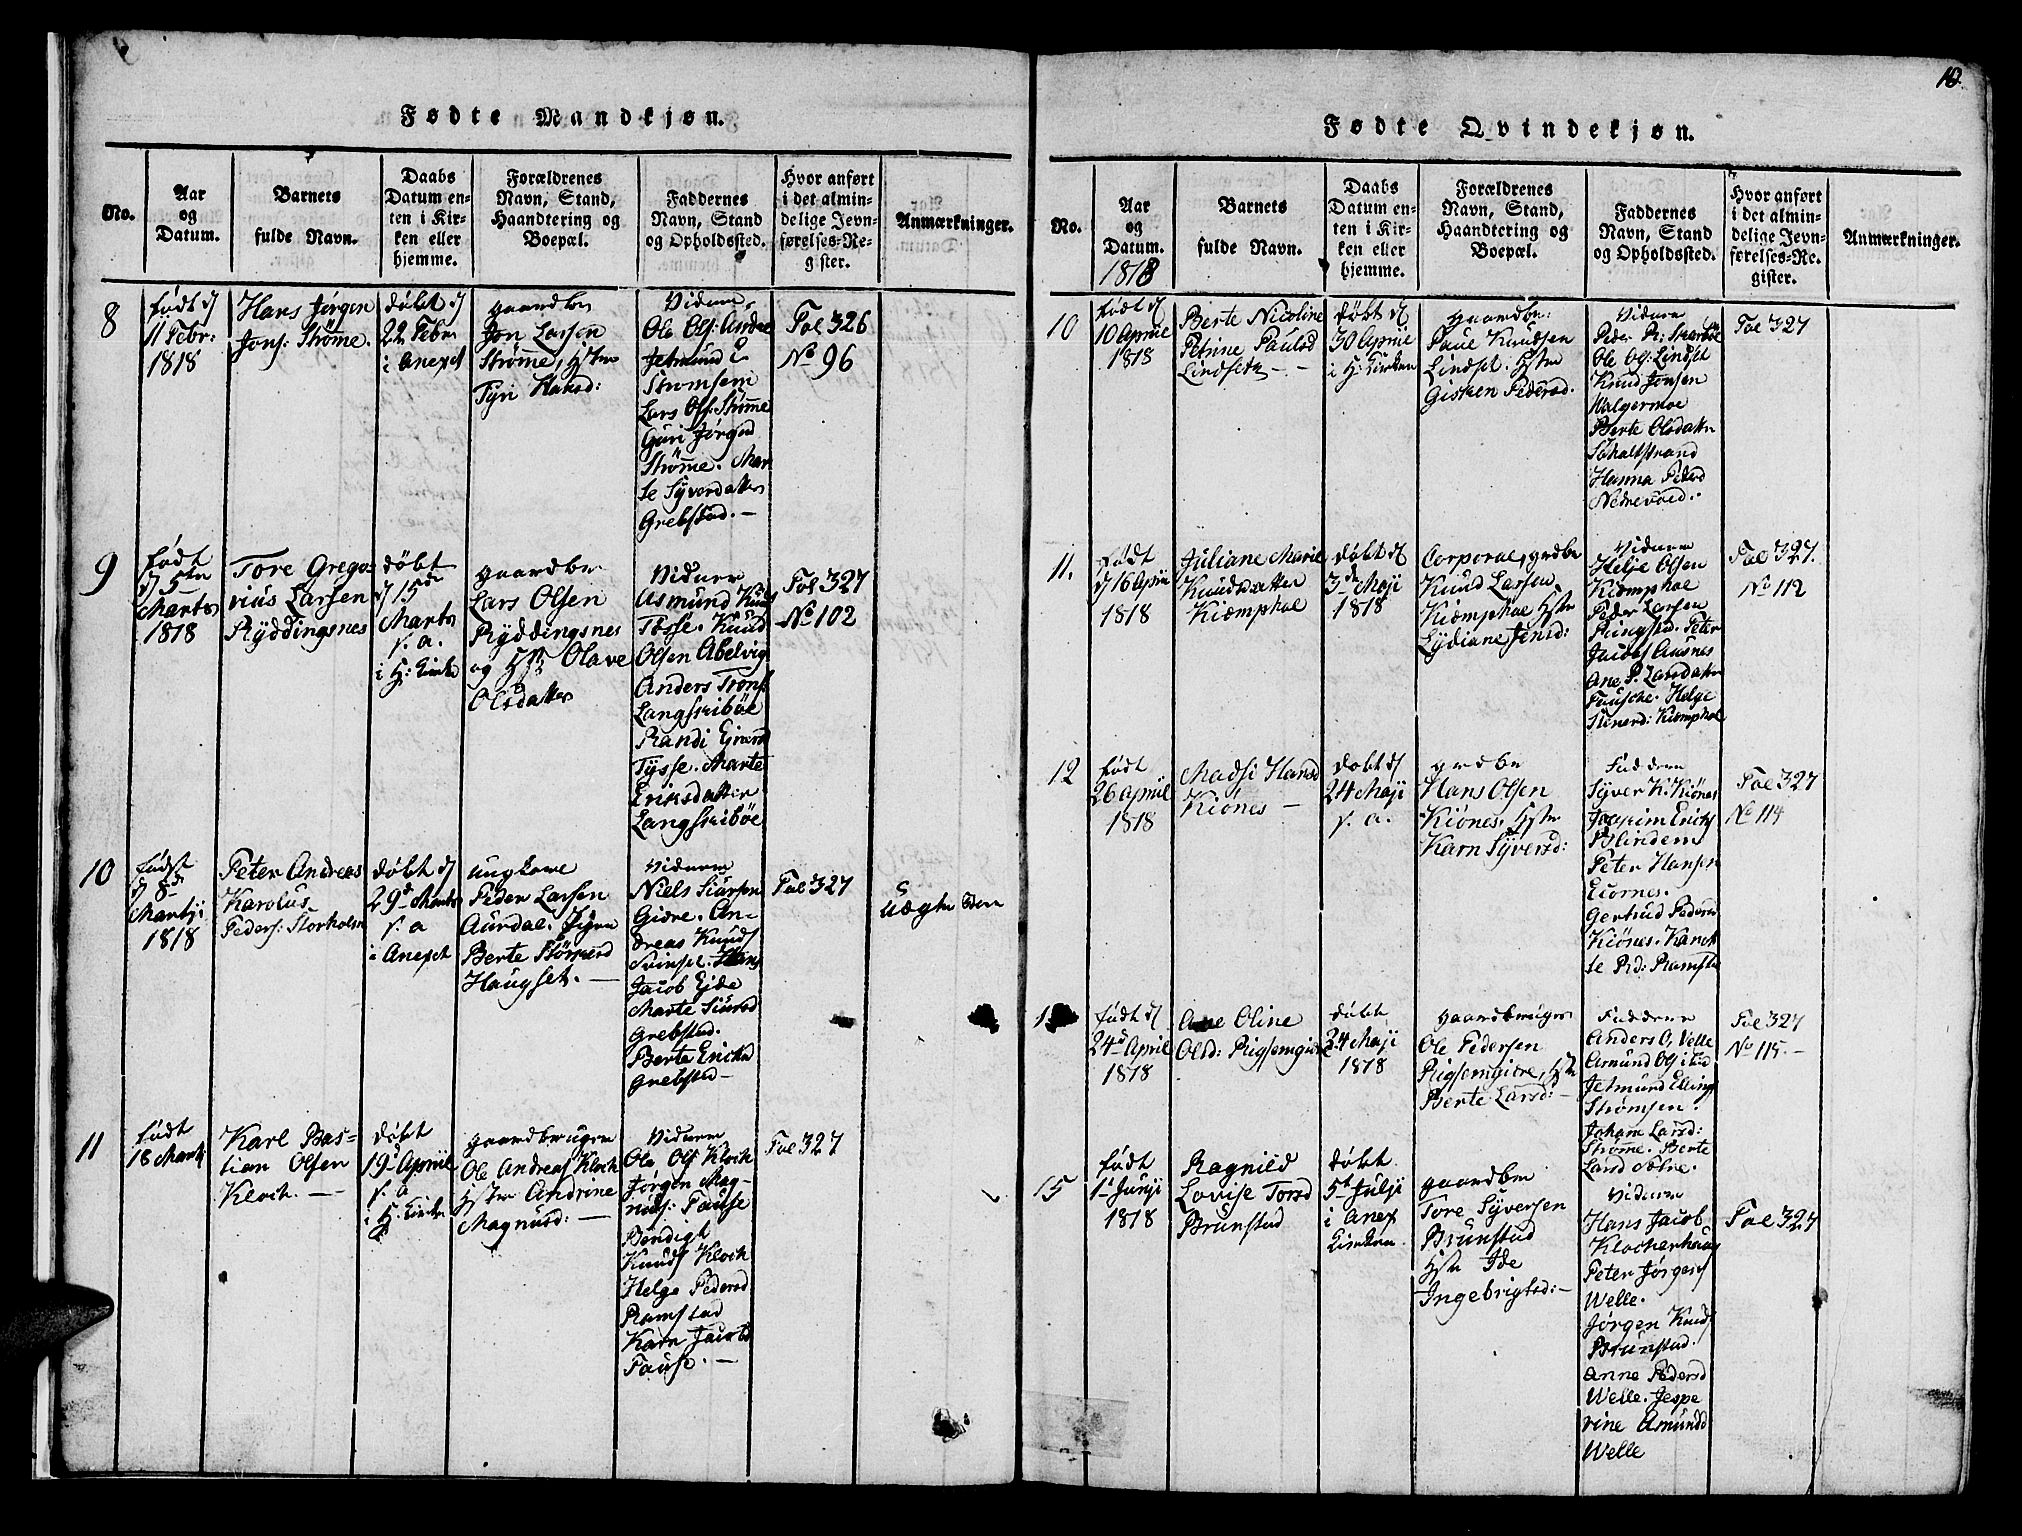 Fødte Mandkjøn.
No.
Aar
og
Datum.
Barnets
fulde Navn.
Daabs
Datum en-
ten i Kir-
ken eller
hjemme.
Forældrenes
Navn, Stand,
Haandtering og
Boepæl.
Faddernes
Navn, Stand
og Opholdssted.
Hvor anført
i det almin-
delige Jevn-
førelses-Re-
gister.
Anmærkninger.
8
født d
11 Febr:
1818
Hans Jørgen
Jons: Strømme.
døbt d
22 Febr
i Anexet
gaardbr
Jon Larsen
Strømme, Hstr
Tyri Hansd:
Viduer
Ole Ols: Andre
Jetmund
Strømsem
Lars Ols: Strømme
Guri Jørgsd
Strømme. Mar
te Syverdatter
Grebstad. —
Fol 326
No 96
9
født
d 5te
Marts
1818
Tore Grego
rius Larsen
Ryddingsnes
døbt
d 15de
Marts
s. a.
i H: Kirke
gaardbr
Lars Olsen
Ryddingsnes
og Hstr Olave
Olsdatter
Viduer
Asmund Knuds
Tøsse. Knud
Olsen Abelvig
Anders Trons
Langskibøe
Randi Einersd
Tysse. Marte
Eriksdatter
Langskibøe
Fol 327
No 102
10
født
d 8de
Martji
1818
Peter Andreas
Karolus
Peders: Storholm
døbt d
29d Marts
s. a
i Anexet
ungkarl
Peder Larsen
Aurdal. Pigen
Berte
Haugset. —
Viduer
Niels Siursen
Giære. An-
dreas Knuds
Svinset. Hans
Jacob Eide
Marte Siursd
Grebstad.
Berte Ericksd
Grebstad —
Fol 327
Uægte Søn
11
født
18 Marts
Karl Bas-
tian Olsen
Kloch. —
døbt
19d Aprill
s. a
i H. Kirke
gaardbruger
Ole Andreas Kloch
Hstr Andrine
Magnusd: —
Viduer
Ole Ols Kloch
Jørgen Mag-
nus: Fause
Bendigt
Knuds Kloch
Helge Pedersd
Ramstad
Karn Jacobsd
Fause. —
Fol 327
10
Fødte Qvindekjøn.
No.
Aar
og
Datum.
1818
Barnets
fulde Navn.
Daabs
Datum en-
ten i Kir-
ken eller
hjemme.
Forældrenes
Navn, Stand,
Haandtering og
Boepæl.
Faddernes
Navn, Stand
og Opholdssted.
Hvor anført
i det almin-
delige Jevn-
førelses-Re-
gister.
Anmærkninger.
10
født d
10 Aprill
1818
Berte Nicoline
Petrine Paulsd
Lindseth - -
døbt d
30 Aprill
i H: Kirken
gaardbr:
Paul Knudsen
Lindset. Hstr
Gisken Pedersd.
Viduer
Peder
Ole Og: Lindset
Knud Jonsen
Walgermoe
Berte Olsdatr
Søholtstrand
Hanna Pedersd
Nedrevold.
Fol 327
11.
født
d 16 Aprill
1818
Juliane Marie
Knudsdatter
Kiemphol
døbt d
3de Maji
1818
Corporal, grdbr
Knud Larsen
Kiømphol Hstr
Lydiane Jensd:
Viduer
Helje Olsen
Kiømphol
Peder Larsen
Ringstad. Peter
Jacobs Ausnes
Ane P. Larsdatter
Fausche. Helge
Stenersd: Kiømphol
Fol 327.
No 112
12
født
26 Aprill
1818
Madsi Hansd
Kiønes —
døbt d
24 Maji
s. a.
grdbr
Hans Olsen
Kiønes. Hstr
Karn Syversd:
Faddere
Syver K: Kiønes
Joachim Ericks
Blindem
Peter Hansen
Giørnes.
Gertrud Pedersd
Kiønes. Karen
Pd: Ramstad
Fol 327
No 114
født d
24d April
1818
Ane Oline
Olsd: Rigsemgiere
døbt
24 Maji
1818
gaardbruger
Ole Pedersen
Rigsemgiere, Hstr
Berte Larsd: —
Faddere
Anders O, Velle
Amund Ols
Jetmund Ellings
Strømsem.
Johan Larsd:
Strømme. Berte
Fol 327
No 115. —
15
født
1d Junji
1818
Ragnild
Lovise Torsd
Brunstad
døbt
5t Julji
i Anex
Kirken.
gaardbr
Tore Syversen
Brunstad
Hstr Ide
Ingebrigtsd: —
Viduer
Hans Jacob
Klocherhaug
Peter Jørgens
Welle.
Jørgen Knuds
Brunstad.
Anne Pedersd
Welle. Jespe
rine Amundsd
Welle
Fol 327